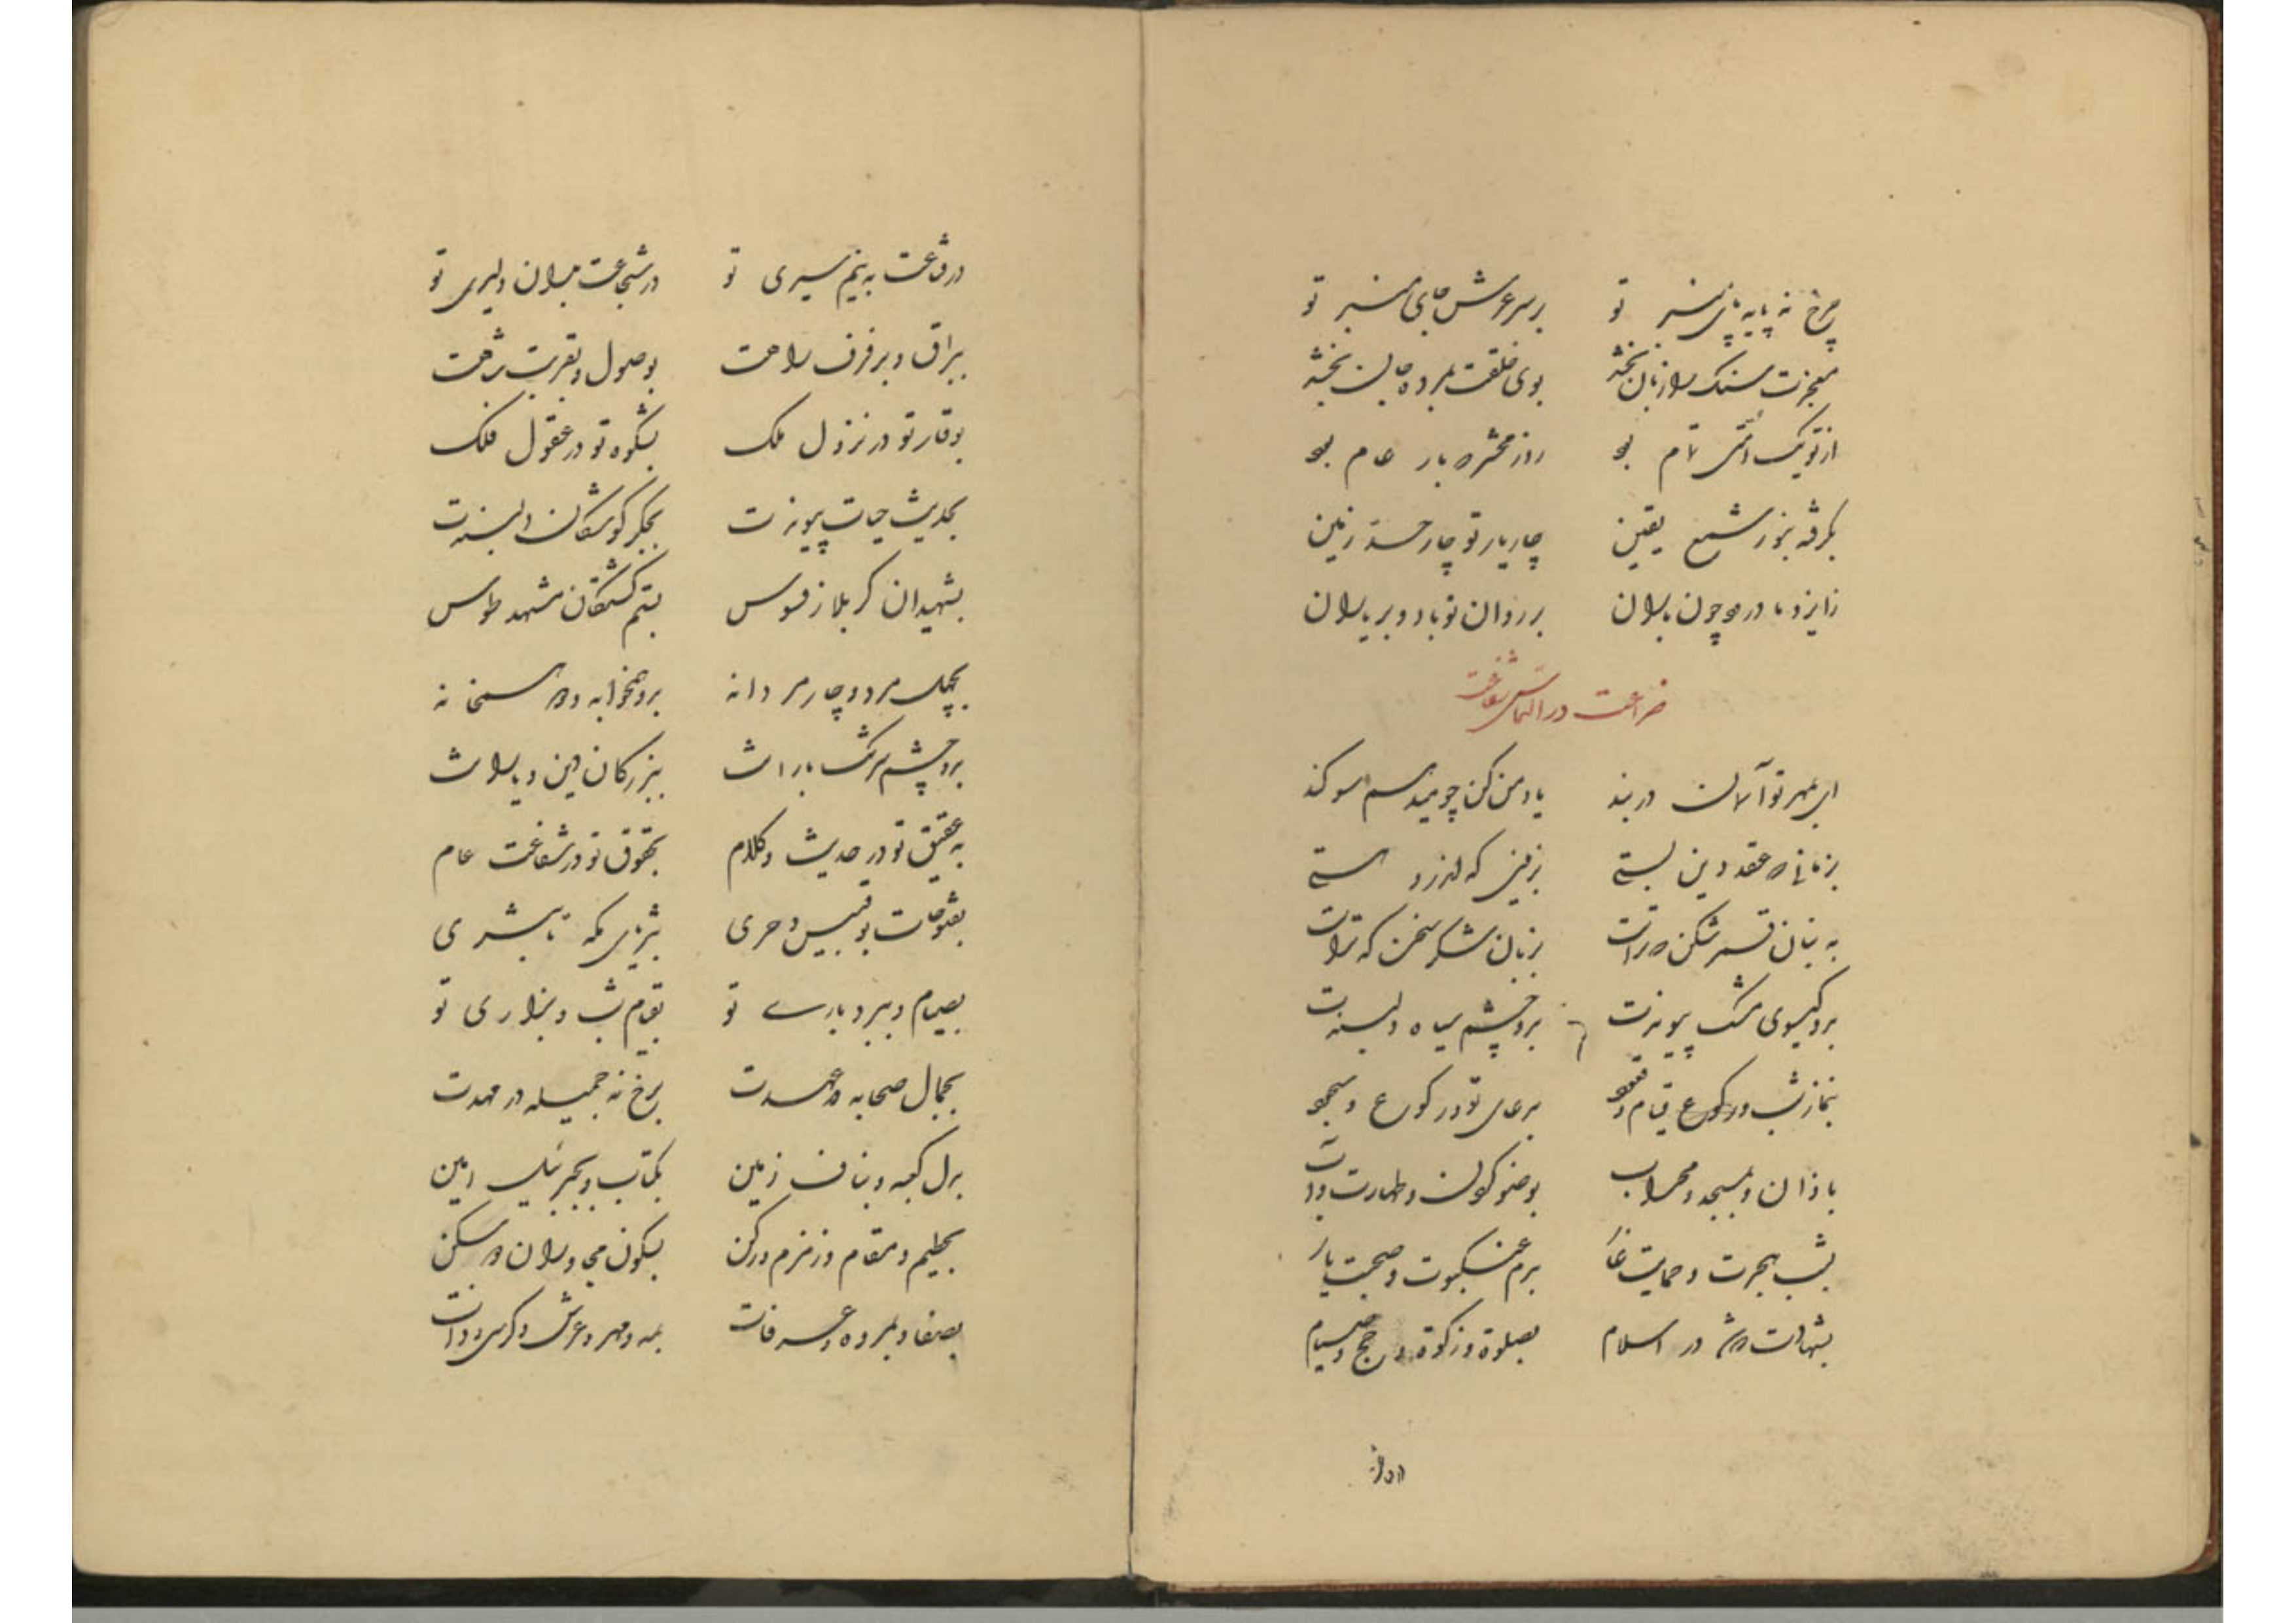 چرخ نه پایه پای منبر تو بر سر عرش جای منبر تو
معجزت سنک را زبان بخشد بوی خلقت بمرده جان بخشد
از تو یک امتی تمام بود روز محشر که بار عام بود
بکرفته بنور شمع یقین چار یار تو چار حد زمین
زایزد ما درود چون باران بر روان تو باد و بر یاران
ضراعت در التماس شفاعت
ای بمهر تو آسمان در بند یاد من کن چو میدهم سوکند
بزمانی که عقد دین بستی بزمینی که اندرو هستی
به بنان قمر شکن که تراست بزبان شکر سخن که تراست
بدو کیسوی مشک پیوندت بدو چشم سیاه دلبندت
بنماز شب و رکوع قیام و قعود بدعای تو در رکوع و سجود
باذان و بمسجد و محراب بوضو کردن و طهارت و آب
بشب هجرت و حمایت غار بدم عنکبوت و صحبت یار
بشهادت که شد در اسلام بصلوة و زکوة و حج و صیام
در وغا
در وغا عت به نیم سیری تو در شجاعت بدان دلیری تو
ببراق و برفرف راهت بوصول و بقربت شهت
بوقار تو در نزول ملک بشکوه تو در عقول فلک
بحدیث حیات پیوندت بجکر کوشکان دلبندت
بشهیدان کربلا ز فسوس بستم کشتکان مشهد طوس
بچهل مرد و چار مردانه بدو همخوابه و دو همخانه
بدو چشم سرشک بارانت ببزرکان دین و یارانت
به عقیق تو در حدیث و کلام بحقوق تو در شفاعت عام
بفتوحات بوقبیس و حری بثریای مکه تا بثری
بصیام و ببردباری تو بقیام شب و بزاری تو
بجمال صحابه و عهدت برخ نه جمیله در مهدت
بدل کعبه و بناف زمین بکتاب و بجبرئیل امین
بحطیم و مقام و زمزم و رکن بسکون مجاوران در سکن
بصفا و بمروه و عرفات بمه و مهر و عرش و کرسی و ذات